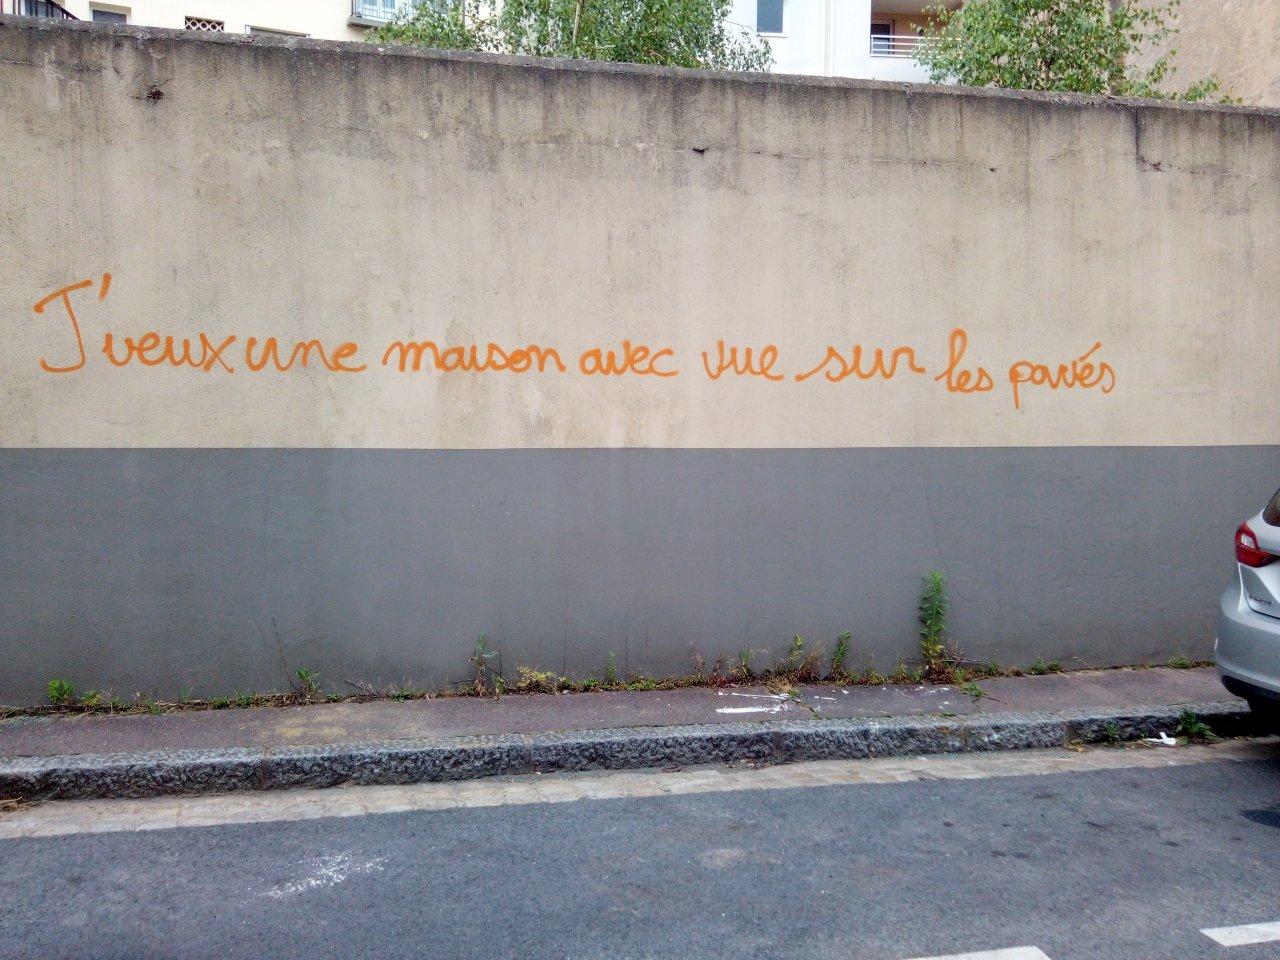 J'veux une maison avec vue sur les pavés